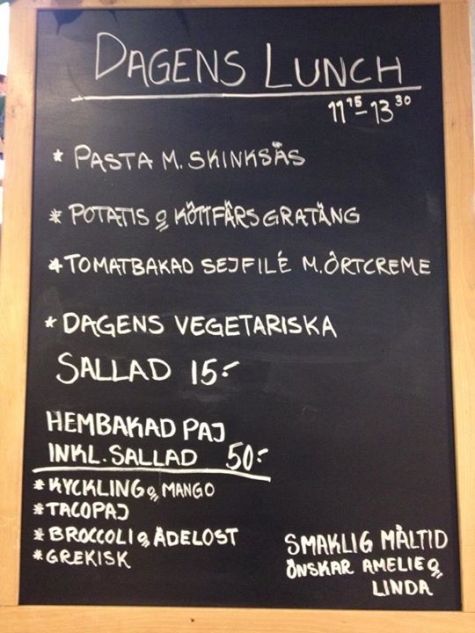 DAGENS LUNCH
11 15 - 13 30
* PASTA M. SKINKSÅS
* POTATIS & KÖTTFÄRSGRATÄNG
* TOMATBAKAD SEJFILÉ M. ÖRTCREME
* DAGENS VEGETARISKA
SALLAD 15:-
HEMBAKAD PAJ
INKL. SALLAD 50:-
* KYCKLING & MANGO
* TACOPAJ
* BROCCOLI & ÄDELOST
* GREKISK
SMAKLIG MÅLTID
ÖNSKAR AMELIE &
LINDA